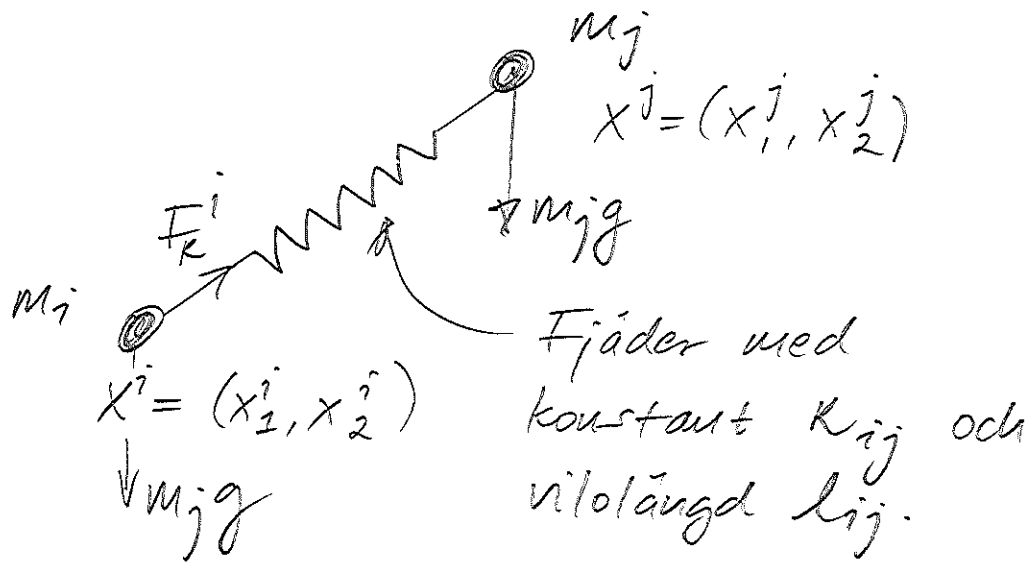 mj
x^j = (x_1^j, x_2^j)
F_k^i
mjg
mi
x^i = (x_1^i, x_2^i)
mjg
Fjäder med
konstant kij och
vilolängd lij.